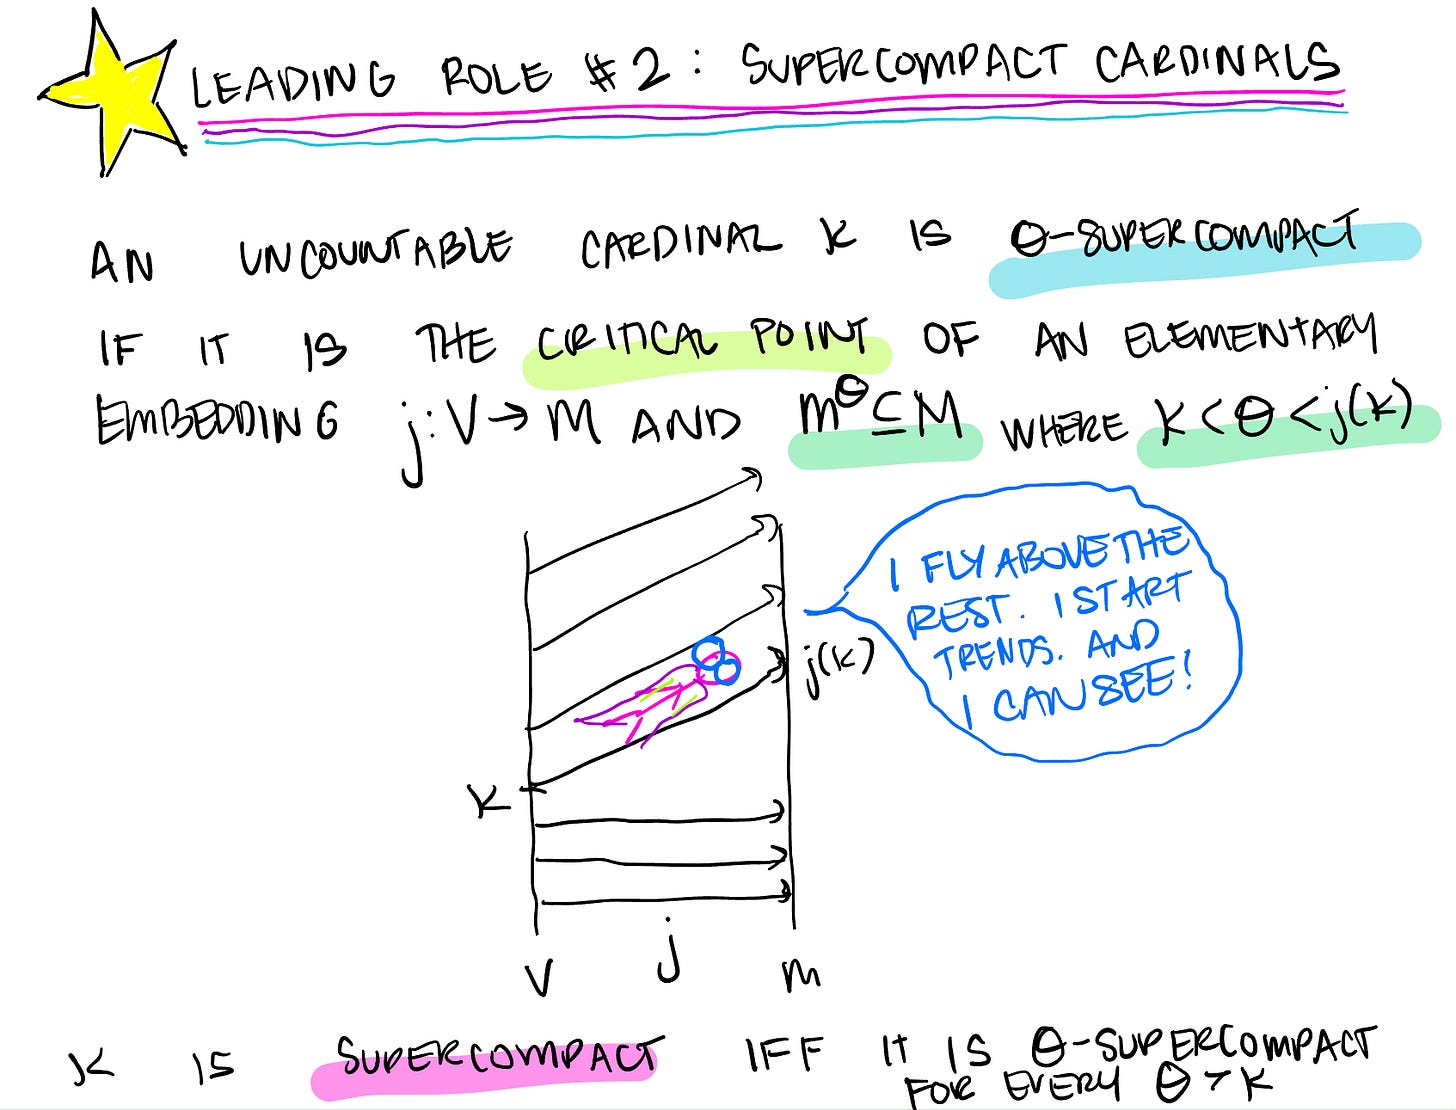 LEADING ROLE #2: SUPERCOMPACT CARDINALS
AN UNCOUNTABLE CARDINAL K IS θ-SUPERCOMPACT
IF IT IS THE CRITICAL POINT OF AN ELEMENTARY
EMBEDDING j: V → M AND M^θ ⊆ M WHERE K < θ < j(K)
I FLY ABOVE THE
REST. I START
TRENDS. AND
I CAN SEE!
j(K)
K
j
V
M
K IS SUPERCOMPACT IFF IT IS θ-SUPERCOMPACT
FOR EVERY θ > K